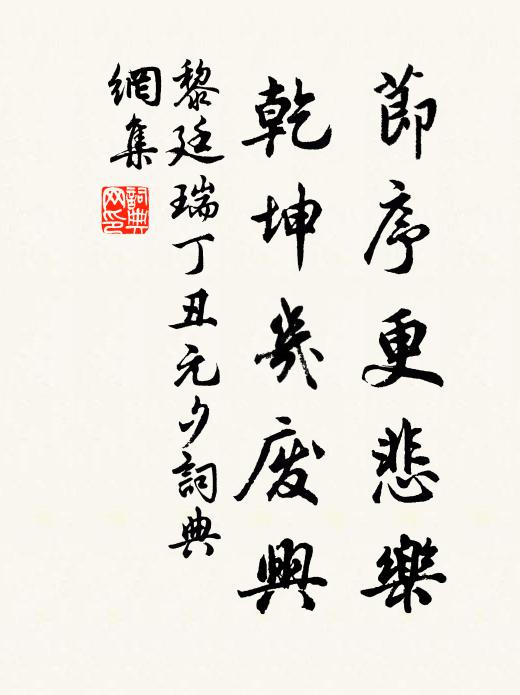 節序更悲樂
乾坤幾廢興
黎廷瑞丁丑元夕詞典
網集
詞典
网印